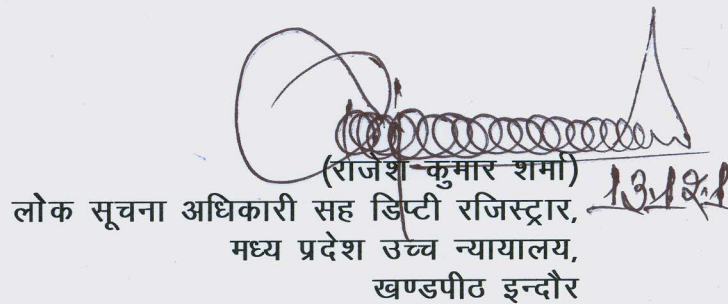 (राजेश कुमार शर्मा)
लोक सूचना अधिकारी सह डिप्टी रजिस्ट्रार,
13.12.1
मध्य प्रदेश उच्च न्यायालय,
खण्डपीठ इन्दौर